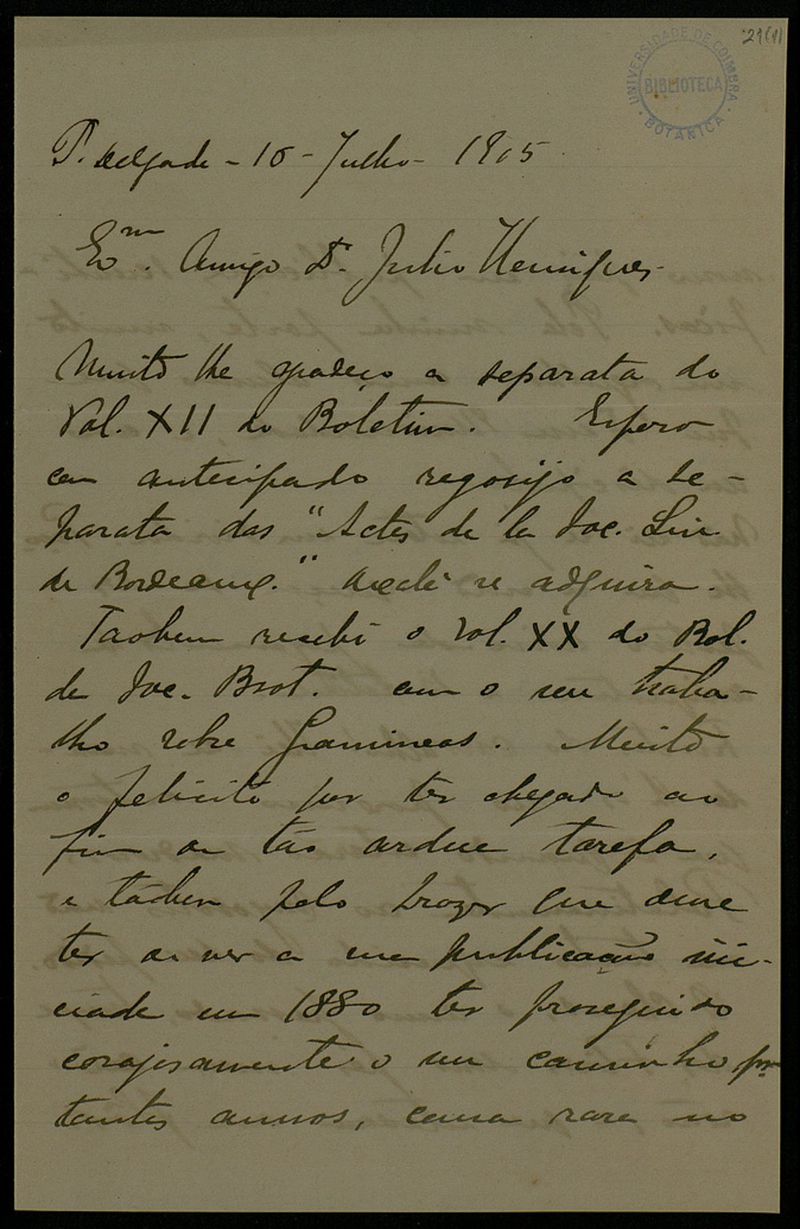 21(1)
UNIVERSIDADE DE COIMBRA
BIBLIOTECA
BOTANICA
P. Delgada - 10 - Julho - 1905
Exmo. Amigo Dr. Julio Henriques
Muito lhe agradeço a separata do
Vol. XII do Boletim. Espero
com antecipado regosijo a se-
parata das "Actes de la Soc. Lin.
de Bordeaux." se adquira.
Tãobem recebi o Vol. XX do Bol.
da Soc. Brot. com o seu traba-
lho sobre Gramineas. Muito
o felicito por ter chegado ao
fim de tão ardua tarefa,
e tãobem pelo prazer que deve
ter de ver a sua publicação ini-
ciada em 1880 ter proseguido
corajosamente o seu caminho por
tantos annos, cousa rara no